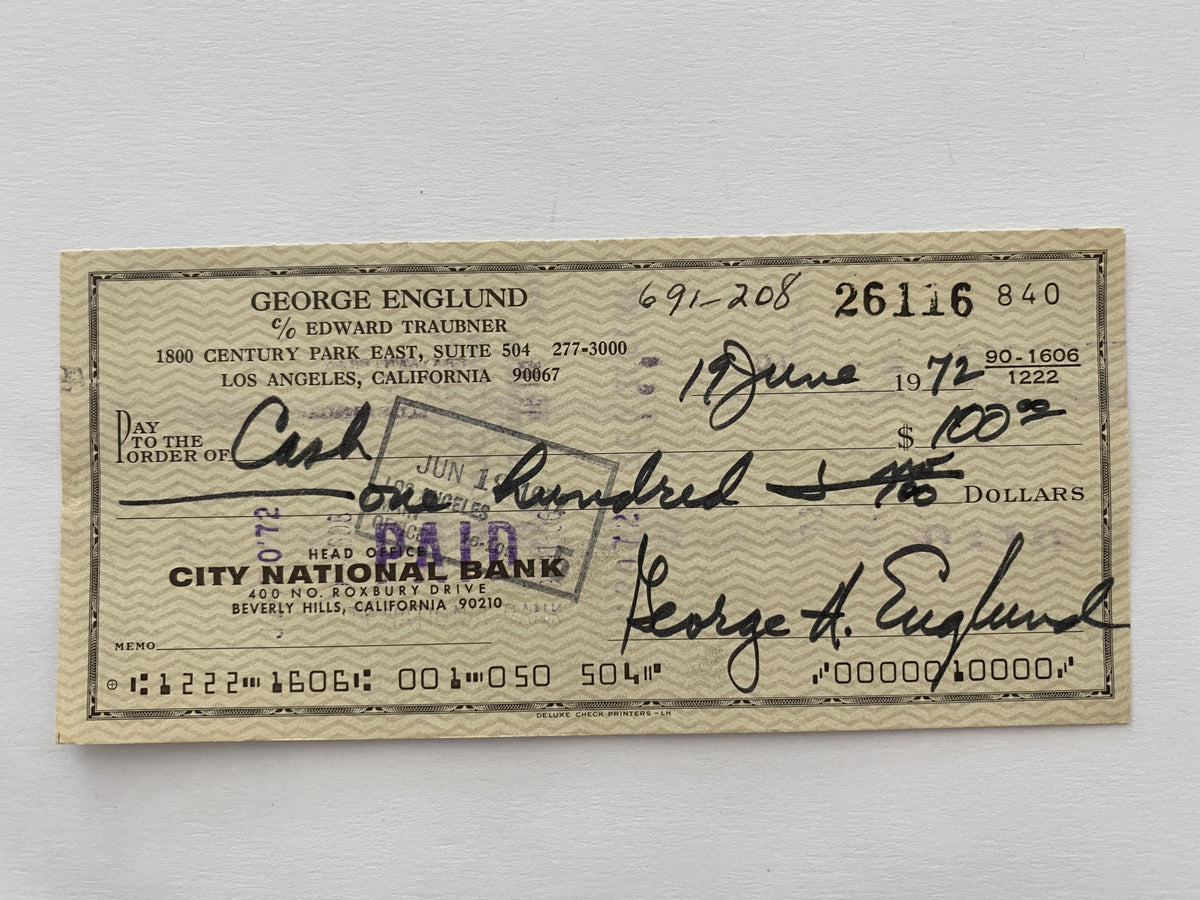 GEORGE ENGLUND
c/o EDWARD TRAUBNER
1800 CENTURY PARK EAST, SUITE 504 277-3000
LOS ANGELES, CALIFORNIA 90067
691-208 26116 840
19 June 1972
90-1606
1222
PAY TO THE ORDER OF Cash $ 100 00
one hundred + no/100 DOLLARS
JUN 19
LOS ANGELES
PAID
HEAD OFFICE
CITY NATIONAL BANK
400 NO. ROXBURY DRIVE
BEVERLY HILLS, CALIFORNIA 90210
George H. Englund
MEMO
⑆1222⑉1606⑆ 001⑉050 504⑈ ⑇0000010000⑇
DELUXE CHECK PRINTERS - LH